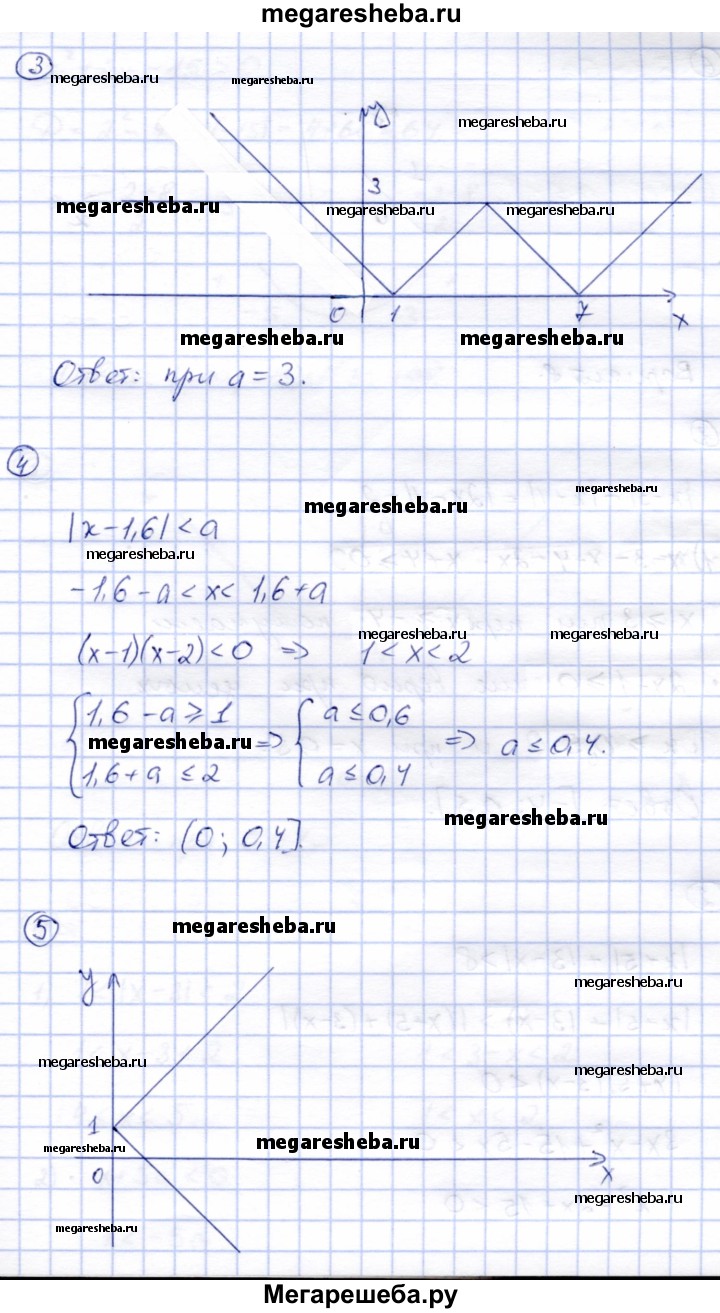 megaresheba.ru
3
megaresheba.ru megaresheba.ru
y
megaresheba.ru
3
megaresheba.ru megaresheba.ru megaresheba.ru
0 1 7 x
megaresheba.ru megaresheba.ru
Ответ: при a = 3.
4
megaresheba.ru
megaresheba.ru
|x-1,6| < a
megaresheba.ru
-1,6 - a < x < 1,6 + a
megaresheba.ru megaresheba.ru
(x-1)(x-2) < 0 => 1 < x < 2
{ 1,6 - a ≥ 1 { a ≤ 0,6
megaresheba.ru => => a ≤ 0,4.
1,6 + a ≤ 2 a ≤ 0,4
megaresheba.ru
Ответ: (0; 0,4].
5
megaresheba.ru
y
megaresheba.ru
megaresheba.ru
megaresheba.ru
1
megaresheba.ru megaresheba.ru
0 x
megaresheba.ru
megaresheba.ru
Мегарешеба.ру